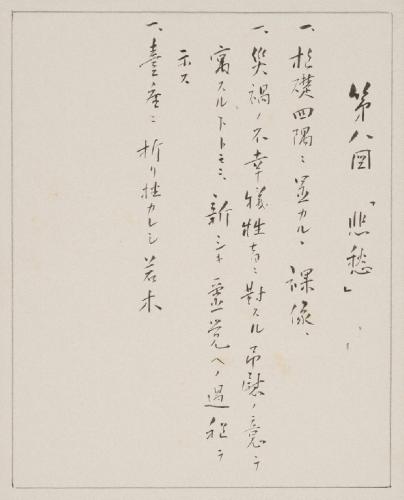 第八図「悲愁」
一、柱礎四隅ニ置カルヽ裸像、
一、災禍ノ不幸犠牲者ニ対スル弔慰ノ意ヲ
寓スルトトモニ、新シキ霊覚ヘノ過程ヲ
示ス
一、臺座ニ折リ挫カレシ若木